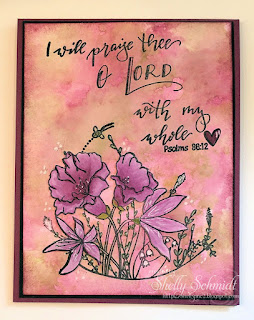 I will praise thee
O LORD
with my
whole
Psalms 86:12
Shelly Schmidt